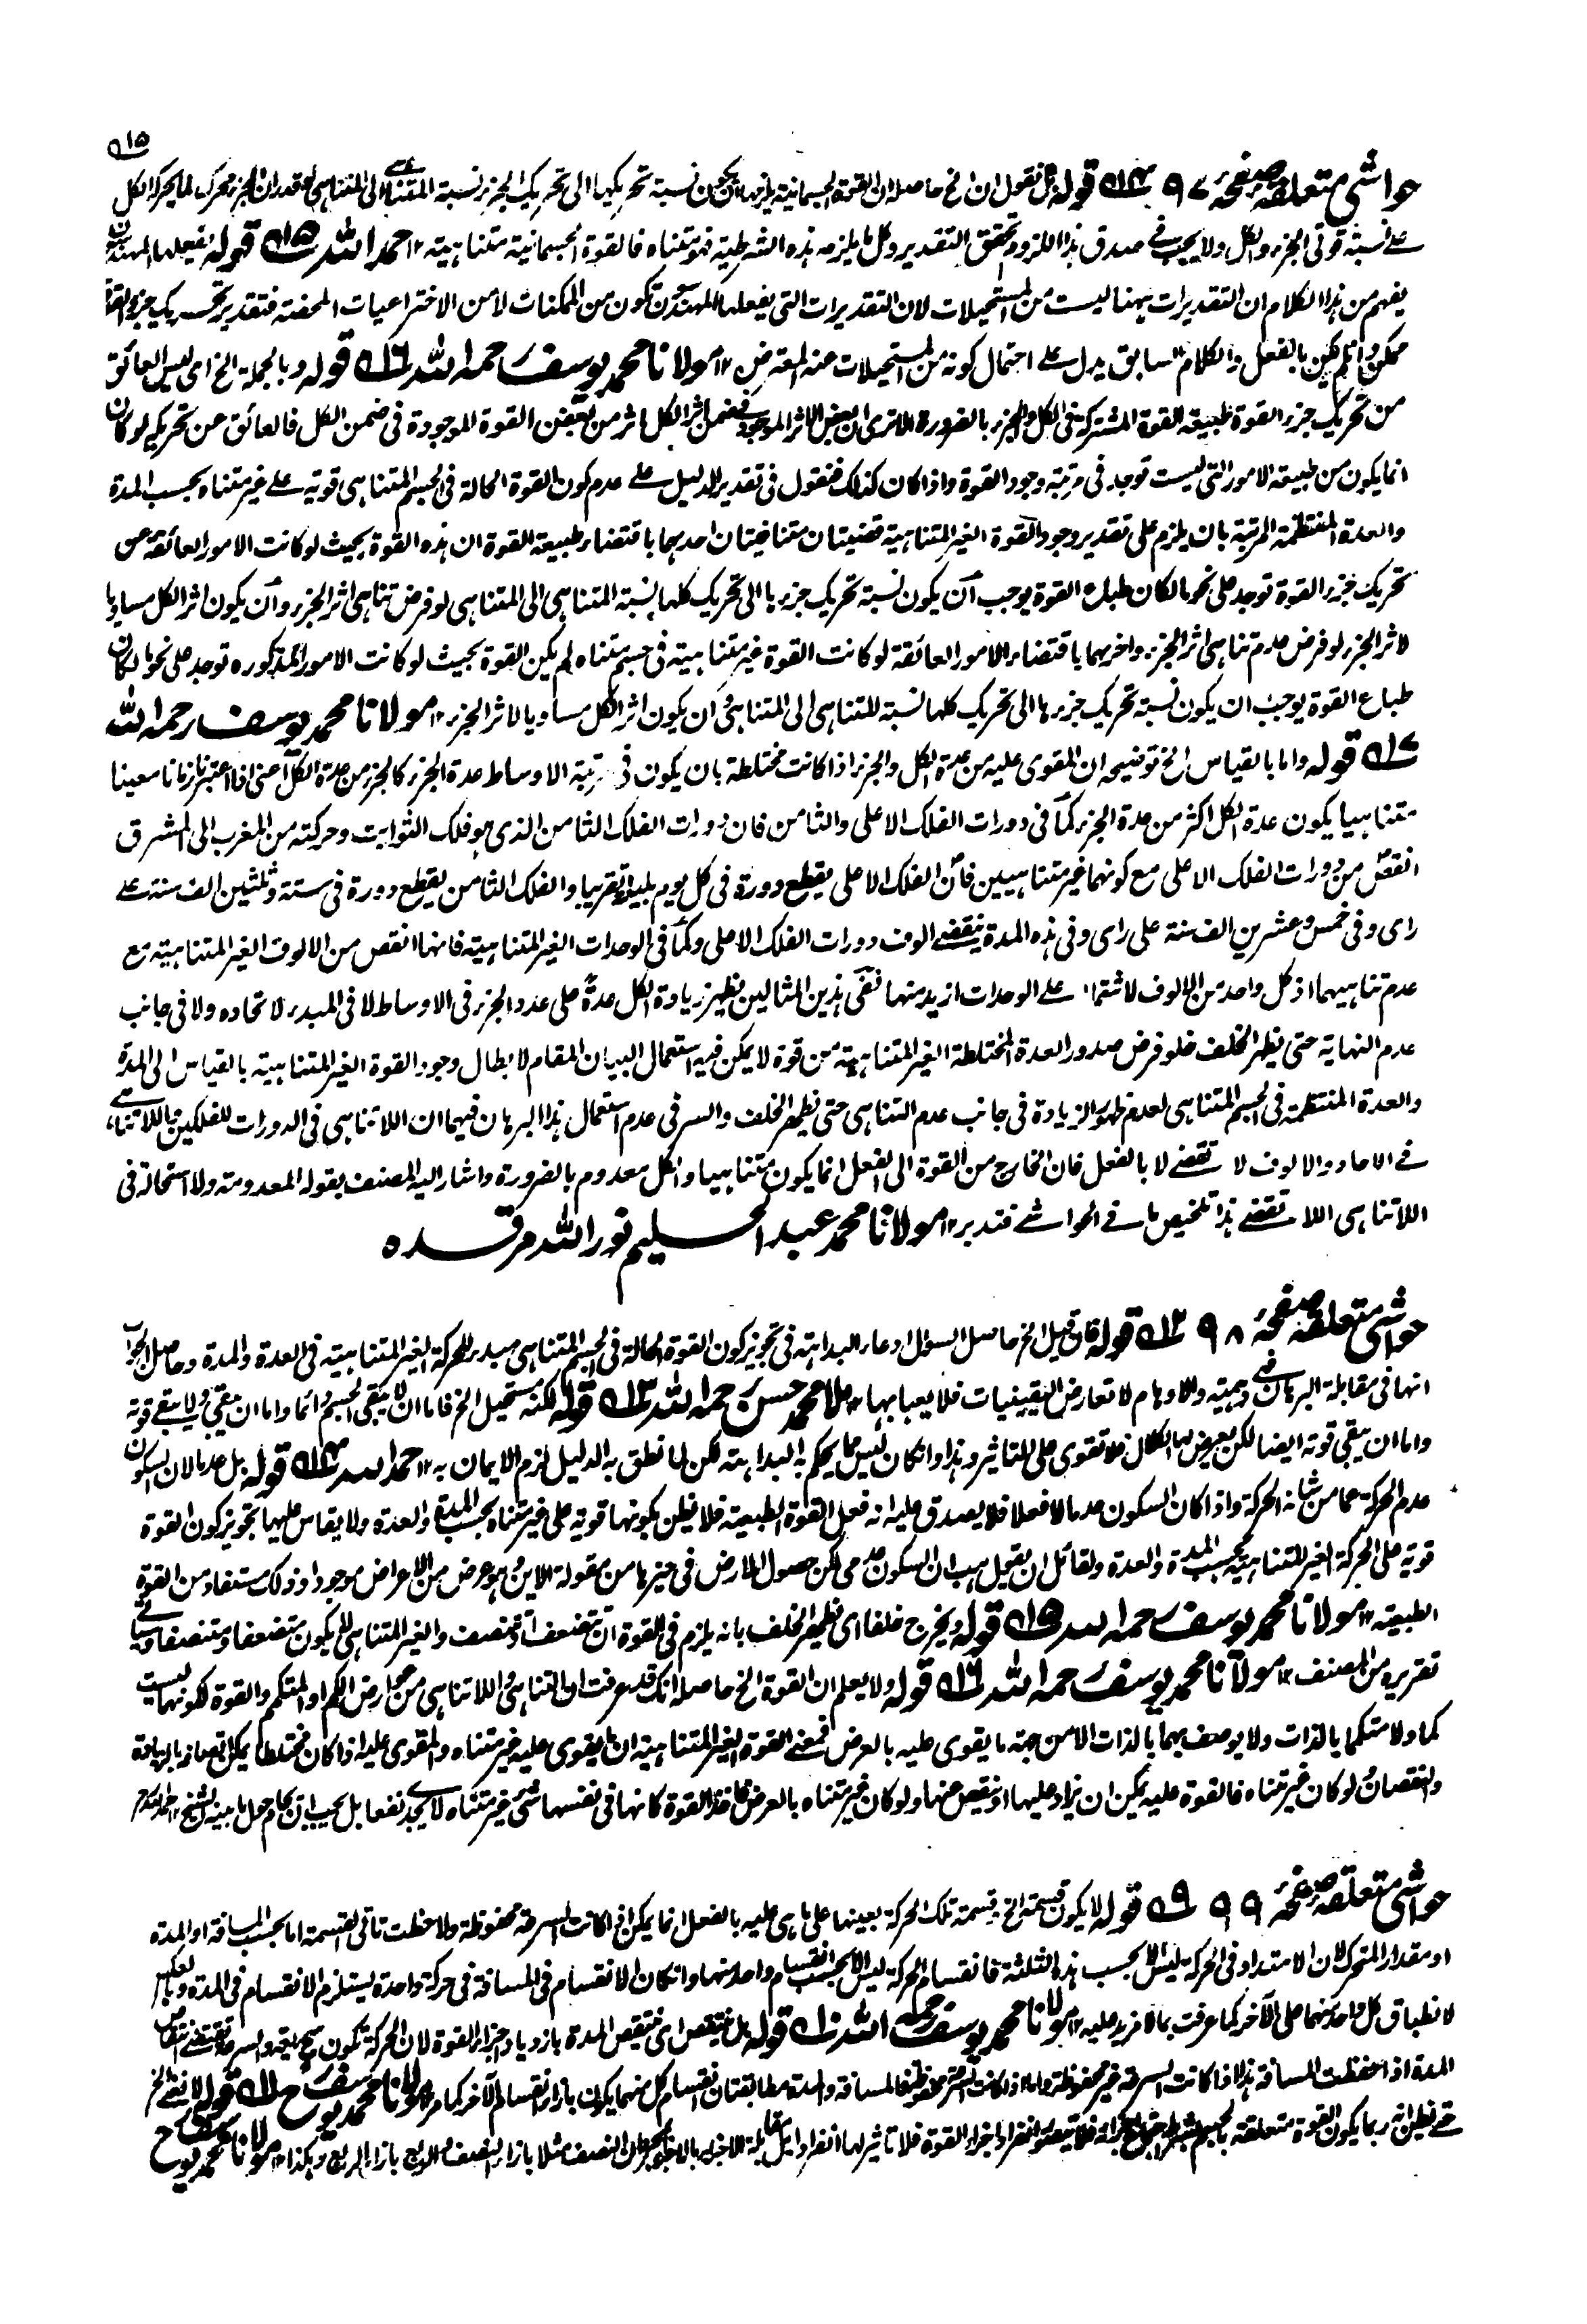 حواشی متعلقہ صفحہ ۹۷ قوله بل نقول ان الخ حاصله ان القوة الجسمانية يلزمها ان يكون نسبة تحريكها الى تحريك الجزء نسبة المتناهى الى المتناهى لو قدر ان الجزء محرك لما يحركه الكل
على نسبة قوتى الجزء والكل ولا يجب فى صدق هذا اللزوم تحقق التقدير وكل ما يلزمه هذه الشرطية فهو متناه فالقوة الجسمانية متناهية ١٢ حمد الله قوله يفعلها المهندسون
يفهم من هذا الكلام ان التقديرات ههنا ليست من المستحيلات لان التقديرات التى يفعلها المهندسون تكون من الممكنات لا من الاختراعيات المحضة فتقدير تحريك جزء القوة
ممكن وان لم يكن بالفعل والكلام السابق يدل على احتمال كونه من المستحيلات عند المعترض ١٢ مولانا محمد يوسف رحمه الله قوله وبالجملة الخ اى ليس العائق
من تحريك جزء القوة طبيعة القوة المشتركة فى الكل والجزء بالضرورة الا ترى ان بعض الاثر الموجود فى ضمن اثر الكل اثر من بعض القوة الموجودة فى ضمن الكل فالعائق عن تحريكه لو كان
انما يكون من طبيعة الامور التى ليست توجد فى مرتبة وجود القوة واذا كان كذلك فنقول فى تقدير الدليل على عدم كون القوة الحالة فى الجسم المتناهى قوية على غير متناه بحسب المدة
والعدة المنتظمة المرتبة بان يلزم على تقدير وجود القوة الغير المتناهية قضيتان متنافيتان احدهما باقتضاء طبيعة القوة ان هذه القوة بحيث لو كانت الامور العائقة عن
تحريك جزء القوة توجد على نحو ما لكان طباع القوة يوجب ان يكون نسبة تحريك جزءها الى تحريك كلها نسبة المتناهى الى المتناهى لو فرض تناهى اثر الجزء وان يكون اثر الكل مساويا
لاثر الجزء لو فرض عدم تناهى اثر الجزء واخرىهما باقتضاء الامور العائقة لو كانت القوة غير متناهية فى جسم متناه لم يكن القوة بحيث لو كانت الامور المذكوره توجد على نحو ما لكان
طباع القوة يوجب ان يكون نسبة تحريك جزءها الى تحريك كلها نسبة المتناهى الى المتناهى وان يكون اثر الكل مساويا لاثر الجزء ١٢ مولانا محمد يوسف رحمه الله
قوله واما بالقياس الخ توضيحه ان المقوى عليه من عدة الكل والجزء اذا كانت مختلطة بان يكون فى مرتبة الاوساط عدة الجزء كالجزء من عدة الكل اعنى اذا اعتبر زمانا معينا
متناهيا يكون عدة الكل اكثر من عدة الجزء كما فى دورات الفلك الاعلى والثامن فان دورات الفلك الثامن الذى هو فلك الثوابت وحركته من المغرب الى المشرق
انقص من دورات الفلك الاعلى مع كونهما غير متناهيين فان الفلك الاعلى يقطع دورة فى كل يوم بليلة تقريبا والفلك الثامن يقطع دورة فى ستة وثلثين الف سنة على
راى وفى خمس وعشرين الف سنة على راى وفى هذه المدة ينقضى الوف دورات الفلك الاعلى وكما فى الوحدات الغير المتناهية فانها انقص من الالوف الغير المتناهية مع
عدم تناهيهما اذ كل واحد من الالوف لاشتماله على الوحدات ازيد منها ففى هذين المثالين يظهر زيادة الكل عدة على عدد الجزء فى الاوساط لا فى المبدء لاتحاده ولا فى جانب
عدم النهاية حتى يظهر الخلف فلو فرض صدور العدة المختلطة الغير المتناهية من قوة لا يمكن فيه استعمال البيان المقام لابطال وجود القوة الغير المتناهية بالقياس الى المدة
والعدة المنتظمة فى الجسم المتناهى لعدم ظهور الزيادة فى جانب عدم التناهى حتى يظهر الخلف والسر فى عدم استعمال هذا البرهان فيهما ان اللاتناهى فى الدورات للفلكين واللاتناهى
فى الاحاد والالوف لا تقفى لا بالفعل فان الخارج من القوة الى الفعل انما يكون متناهيا والكل معدوم بالضرورة واشار اليه المصنف بقوله المعدومة ولا استحالة فى
اللاتناهى اللا تقفى هذا تلخيص ما فى الحواشى فتدبر ١٢ مولانا محمد عبد الحليم نور الله مرقده
حواشی متعلقہ صفحہ ۹۸ قوله فان قيل الخ حاصل السؤال ادعاء البداهة فى تجويز كون القوة الحالة فى الجسم المتناهى مبدء للحركة الغير المتناهية فى العدة والمدة وحاصل الجواب
انها فى مقابلة البرهان فهى وهمية والاوهام لا تعارض اليقينيات فلا يعبا بها ١٢ ملا محمد حسن رحمه الله قوله لكنه مستحيل الخ فاما ان لا يبقى الجسم دائما واما ان يبقى ولا يبقى قوته
واما ان يبقى قوته ايضا لكن يعرض لها الكلال فلا تقوى على التاثير وهذا وان كان ليس مما يحكم به البداهة لكن لما نطق به الدليل لزم الايمان به ١٢ حمد الله قوله بل عدما لان السكون
عدم الحركة عما من شانه الحركة واذا كان السكون عدما لا فعلا فلا يصدق عليه انه فعل القوة الطبيعية فلا يظن بكونها قوية على غير متناه بحسب المدة والعدة ولا يقاس عليها تجويز كون القوة
قوية على الحركة الغير المتناهية بحسب المدة والعدة ولقائل ان يقول هب ان السكون عدمى لكن حصول الارض فى حيزها من مقولة الاين وهو عرض من الاعراض موجود اذ ذلك مستفاد من القوة
الطبيعية ١٢ مولانا محمد يوسف رحمه الله قوله ويخرج خلفا اى يظهر الخلف بانه يلزم فى القوة ان تتضعف او تتنصف والغير المتناهى لا يكون متضعفا ومتنصفا وسياتى
تقريره من المصنف ١٢ مولانا محمد يوسف رحمه الله قوله ولا يعلم ان القوة الخ حاصله انك قد عرفت ان التناهى واللاتناهى من عوارض الكم او المتكمم والقوة لكونها ليست
كما ولا متكمما بالذات ولا يوصف بهما بالذات الا من جهة ما يقوى عليه بالعرض فمعنى القوة الغير المتناهية ان ما يقوى عليه غير متناه والمقوى عليه اذا كان مختلطا يمكن اتصافه بالزيادة
والنقصان لو كان غير متناه فالقوة عليه يمكن ان يزاد عليها او ينقص عنها ولو كان غير متناه بالعرض فاخذ القوة كانها فى نفسها شئ غير متناه لا يجدى نفعا بل يجب
حواشی متعلقہ صفحہ ۹۹ قوله لا يكون قسمة الخ قسمة تلك الحركة بعينها على ما هى عليه بالفعل انما يمكن اذا كانت السرعة محفوظة ولاحفظت تاتى القسمة اما بحسب المسافة او المدة
او مقدار المتحرك لان الامتداد فى الحركة ليس الا بحسب هذه الثلثة فانقسام الحركة ليس الا بحسب انقسام واحد منها وان كان الانقسام فى المسافة فى حركة واحدة يستلزم الانقسام فى المدة وبالعكس
لانطباق كل واحد منهما على الآخر كما عرفت بما لا مزيد عليه ١٢ مولانا محمد يوسف رحمه الله قوله بل ينتقص اى ينتقص المدة بازدياد اجزاء القوة لان الحركة تكون سريعة والسرعة تقتضى انتقاص
المدة اذا حفظت المسافة هذا اذا كانت السرعة غير محفوظة واما اذا كانت السرعة محفوظة فالمسافة والمدة مطابقتان انقسام كل منهما يكون بازاء انقسام الآخر كما مر ١٢ مولانا محمد يوسف رح
ربما يكون القوة متعلقة بالجسم بشرط فلا تاثير لها انفرادا النصف مثلا بازاء النصف والربع بازاء الربع وهكذا ١٢ مولانا محمد يوسف رح